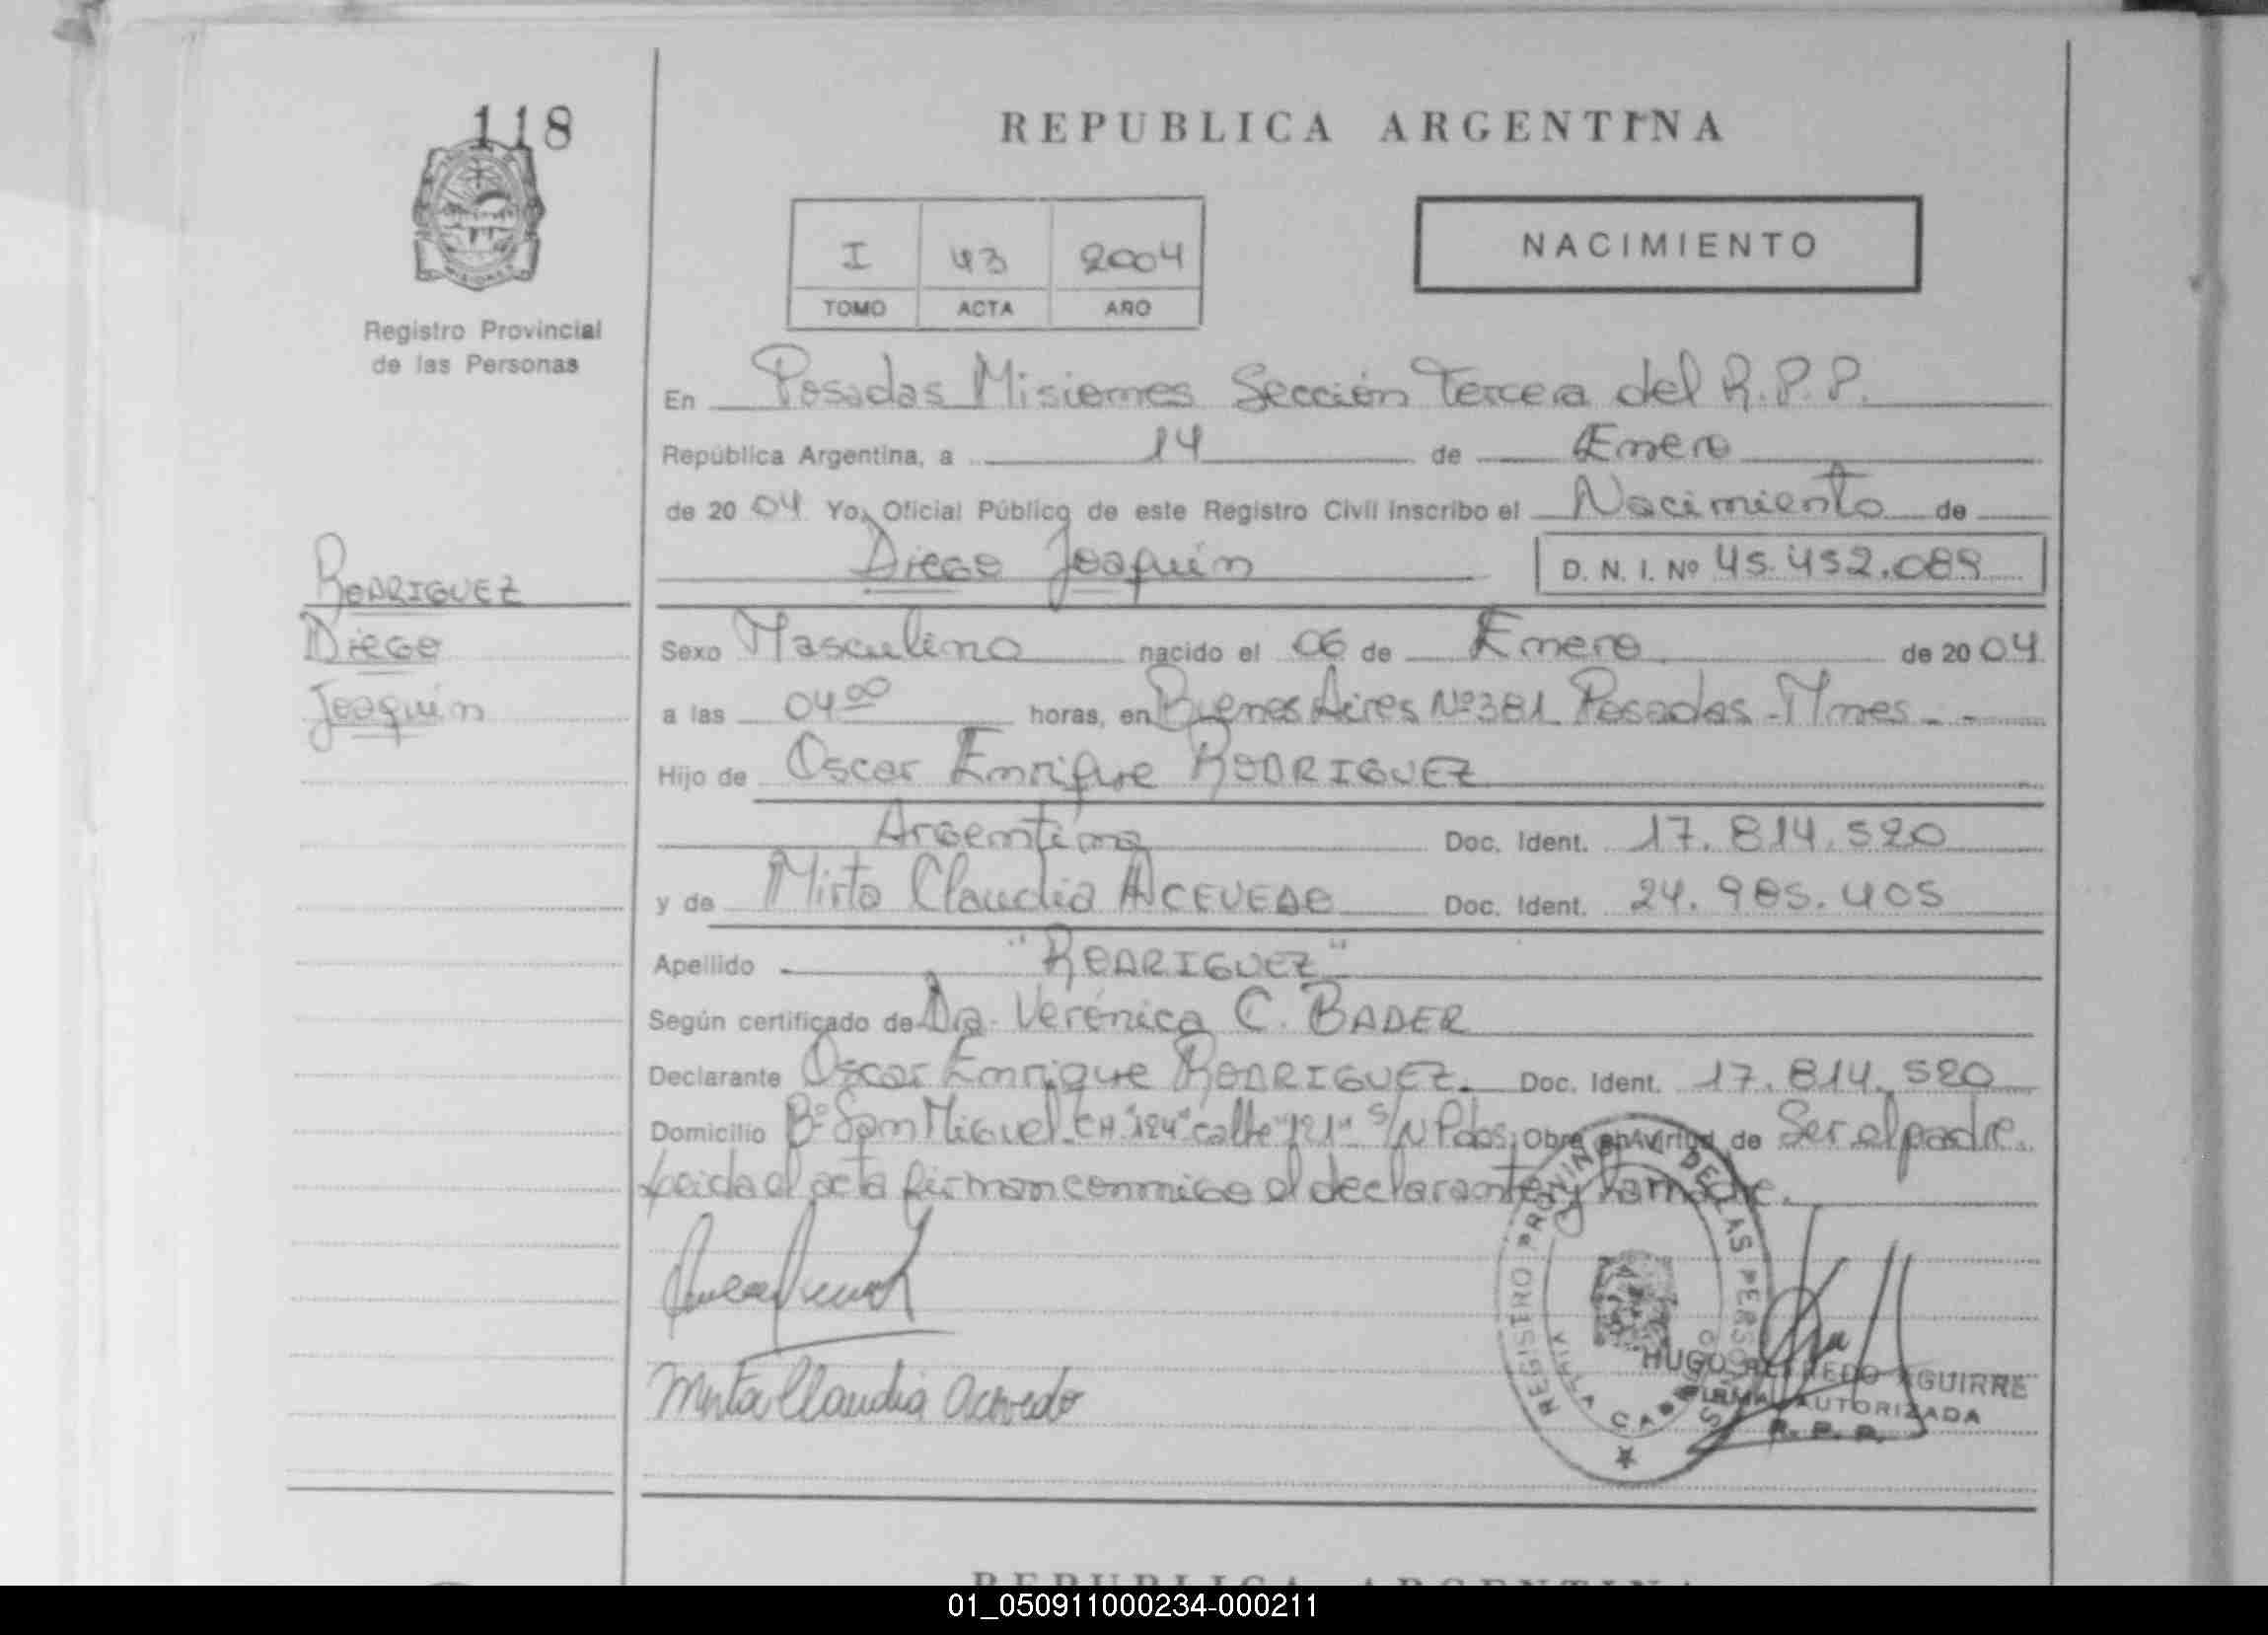 118
REPUBLICA ARGENTINA
I 43 2004
TOMO ACTA AÑO
NACIMIENTO
Registro Provincial
de las Personas
En Posadas Misiones Sección Tercera del R.P.P.
República Argentina, a 14 de Enero
de 20 04 Yo, Oficial Público de este Registro Civil inscribo el Nacimiento de
Diego Joaquín D. N. I. Nº 45.452.089
RODRIGUEZ
Diego
Joaquín
Sexo Masculino nacido el 06 de Enero de 20 04
a las 04 00 horas, en Buenos Aires Nº 381 Posadas - Mnes - -
Hijo de Oscar Enrique RODRIGUEZ
Argentina Doc. Ident. 17.814.520
y de Mirta Claudia ACEVEDO Doc. Ident. 24.985.405
Apellido "RODRIGUEZ"
Según certificado de Dra. Verónica C. BADER
Declarante Oscar Enrique RODRIGUEZ. Doc. Ident. 17.814.520
Domicilio Bº San Miguel CH "124" calle "121" S/N Pdas, Obra en virtud de Ser el padre.
Leida el acta firman conmigo el declarante y la madre.
Mirta Claudia Acevedo
REGISTRO PROVINCIAL DE LAS PERSONAS
HUGO ALFREDO AGUIRRE
FIRMA AUTORIZADA
R. P. P.
REPUBLICA ARGENTINA
01_050911000234-000211